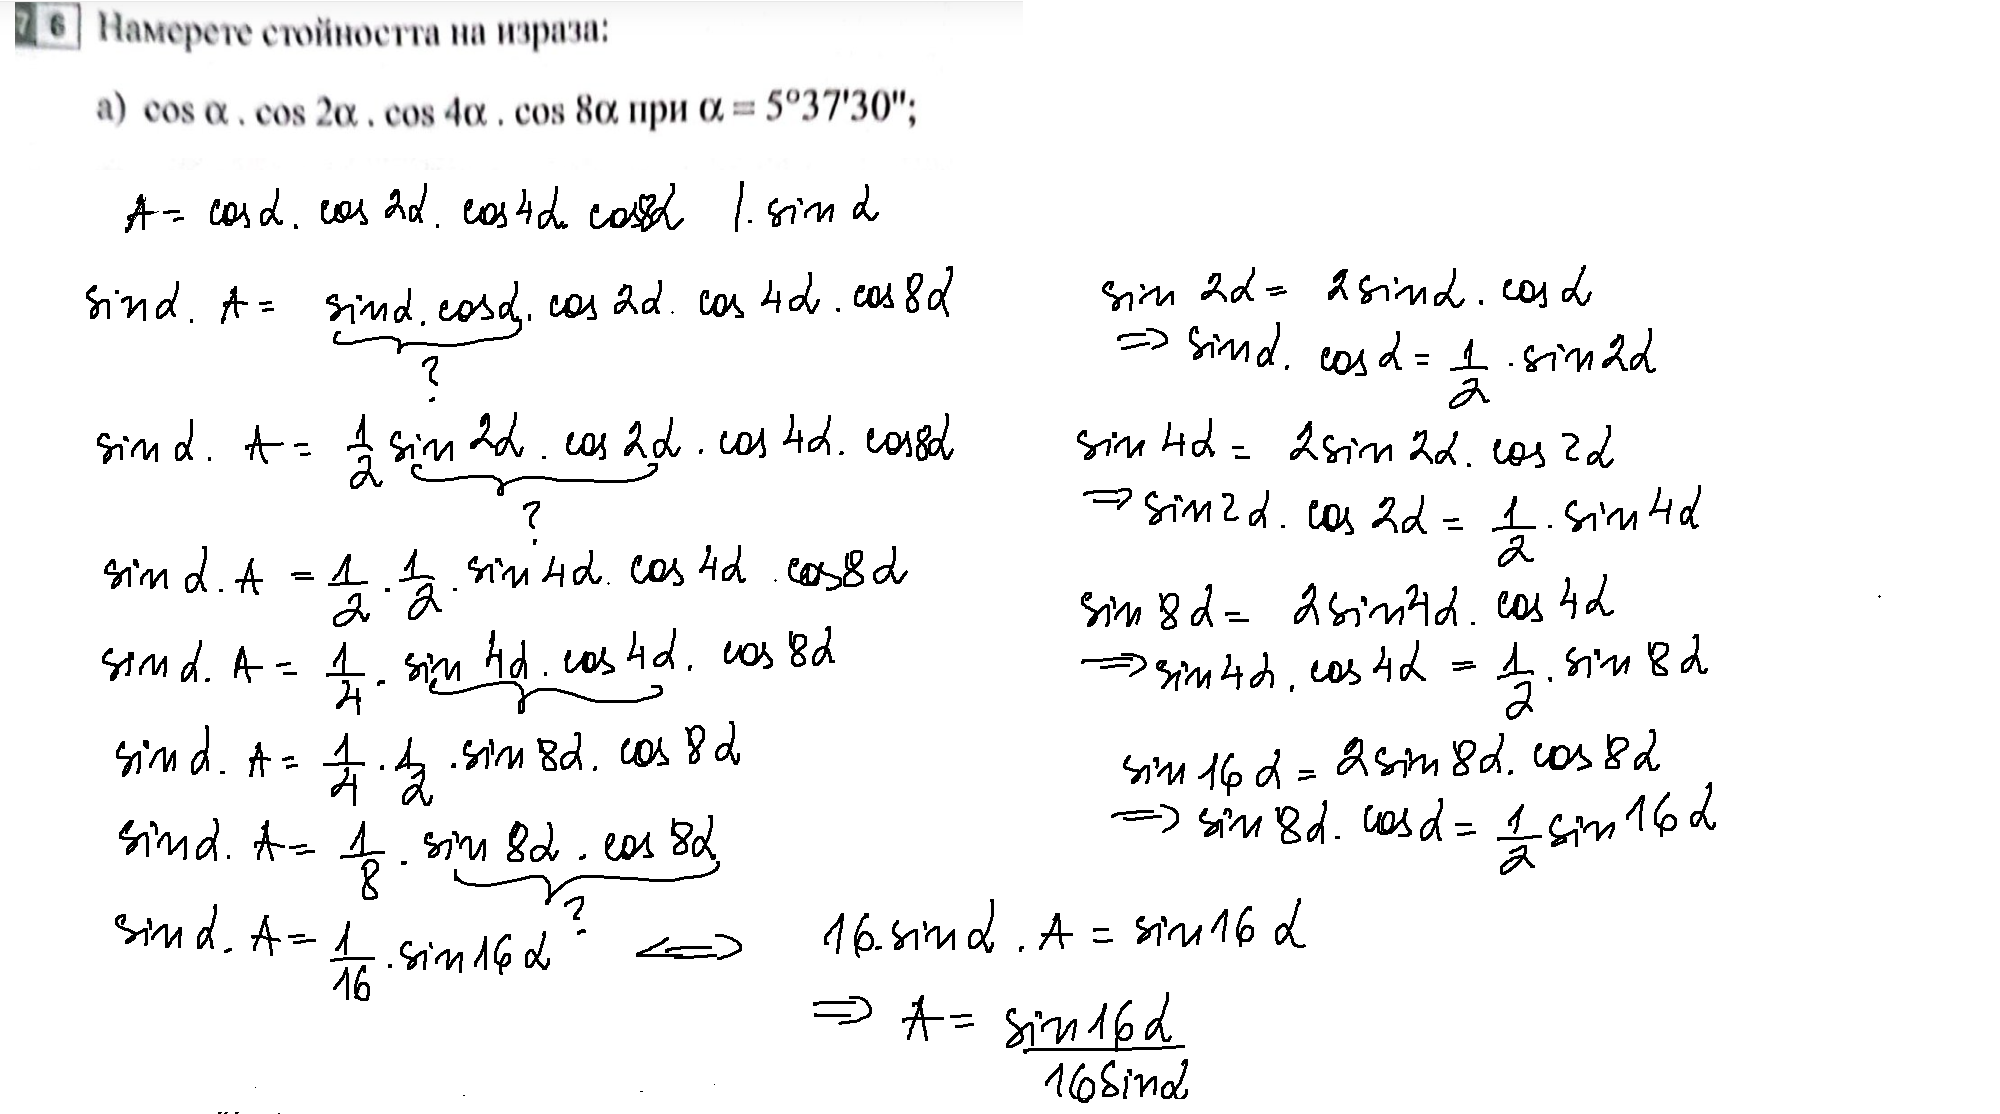 7 6 Намерете стойността на израза:
а) cos α . cos 2α . cos 4α . cos 8α при α = 5°37'30";
A = cos α . cos 2α . cos 4α . cos 8α |. sin α
sin α . A = sin α . cos α . cos 2α . cos 4α . cos 8α
?
sin α . A = 1/2 sin 2α . cos 2α . cos 4α . cos 8α
?
sin α . A = 1/2 . 1/2 . sin 4α . cos 4α . cos 8α
sin α . A = 1/4 . sin 4α . cos 4α . cos 8α
sin α . A = 1/4 . 1/2 . sin 8α . cos 8α
sin α . A = 1/8 . sin 8α . cos 8α
?
sin α . A = 1/16 . sin 16α ⇔ 16 . sin α . A = sin 16α
⇒ A = sin 16α / 16 sin α
sin 2α = 2 sin α . cos α
⇒ sin α . cos α = 1/2 . sin 2α
sin 4α = 2 sin 2α . cos 2α
⇒ sin 2α . cos 2α = 1/2 . sin 4α
sin 8α = 2 sin 4α . cos 4α
⇒ sin 4α . cos 4α = 1/2 . sin 8α
sin 16α = 2 sin 8α . cos 8α
⇒ sin 8α . cos α = 1/2 sin 16α